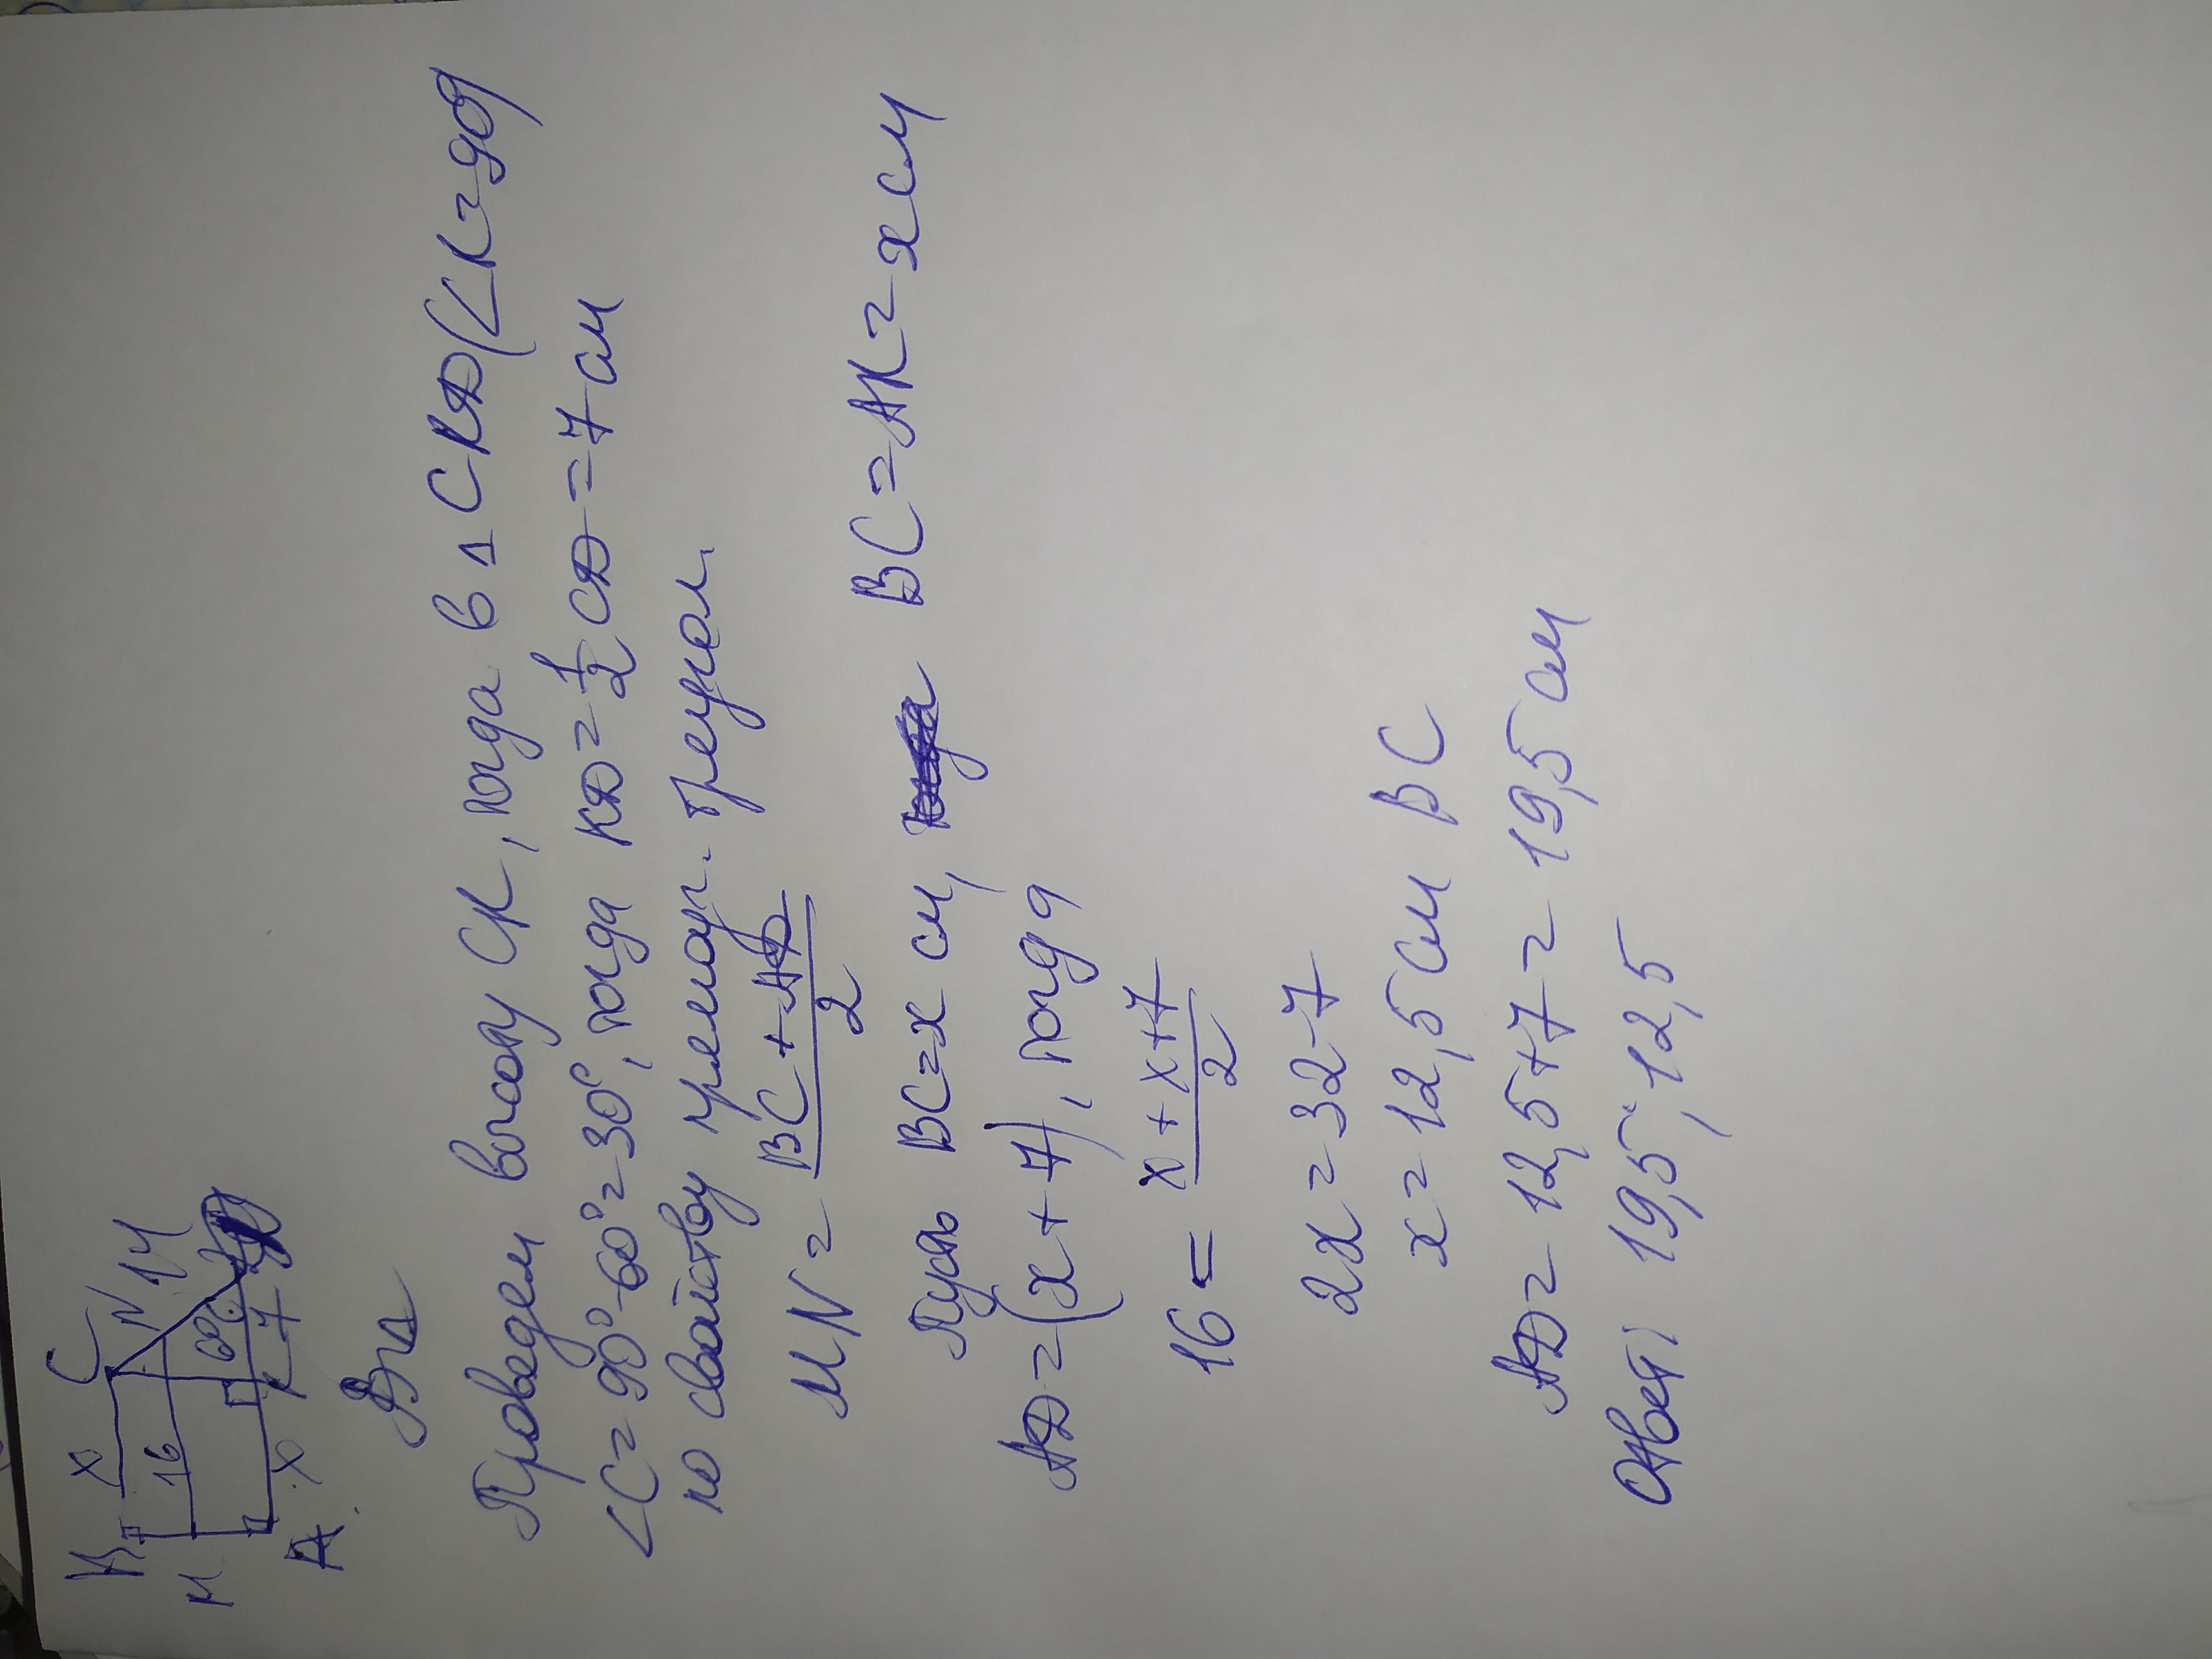 В x C
M 16 N 14
60°
A x K 7
Проведем высоту CK, тогда в △ CKD (∠K=90°)
∠C=90°-60°=30°, тогда KD=1/2 CD=7 см
по свойству прямоуг. треугол.
MN = (BC+AD)/2
Пусть BC=x см, BC=AK=x см
AD=(x+7), тогда
16 = (x+x+7)/2
2x=32-7
x=12,5 см BC
AD=12,5+7=19,5 см
Ответ: 19,5; 12,5